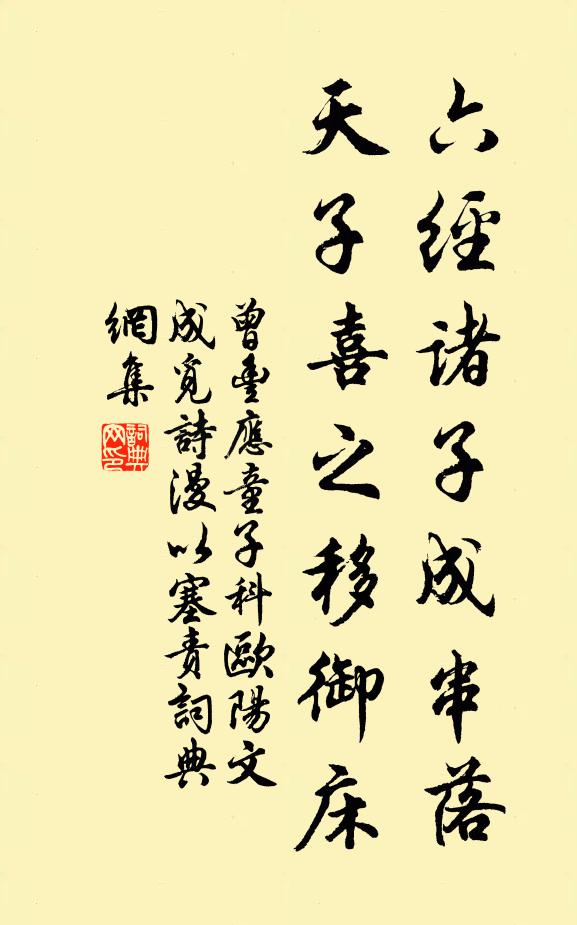 六經諸子成串落
天子喜之移御床
曾豐應童子科歐陽文
成覓詩漫以塞責詞典
網集
詞典
网印